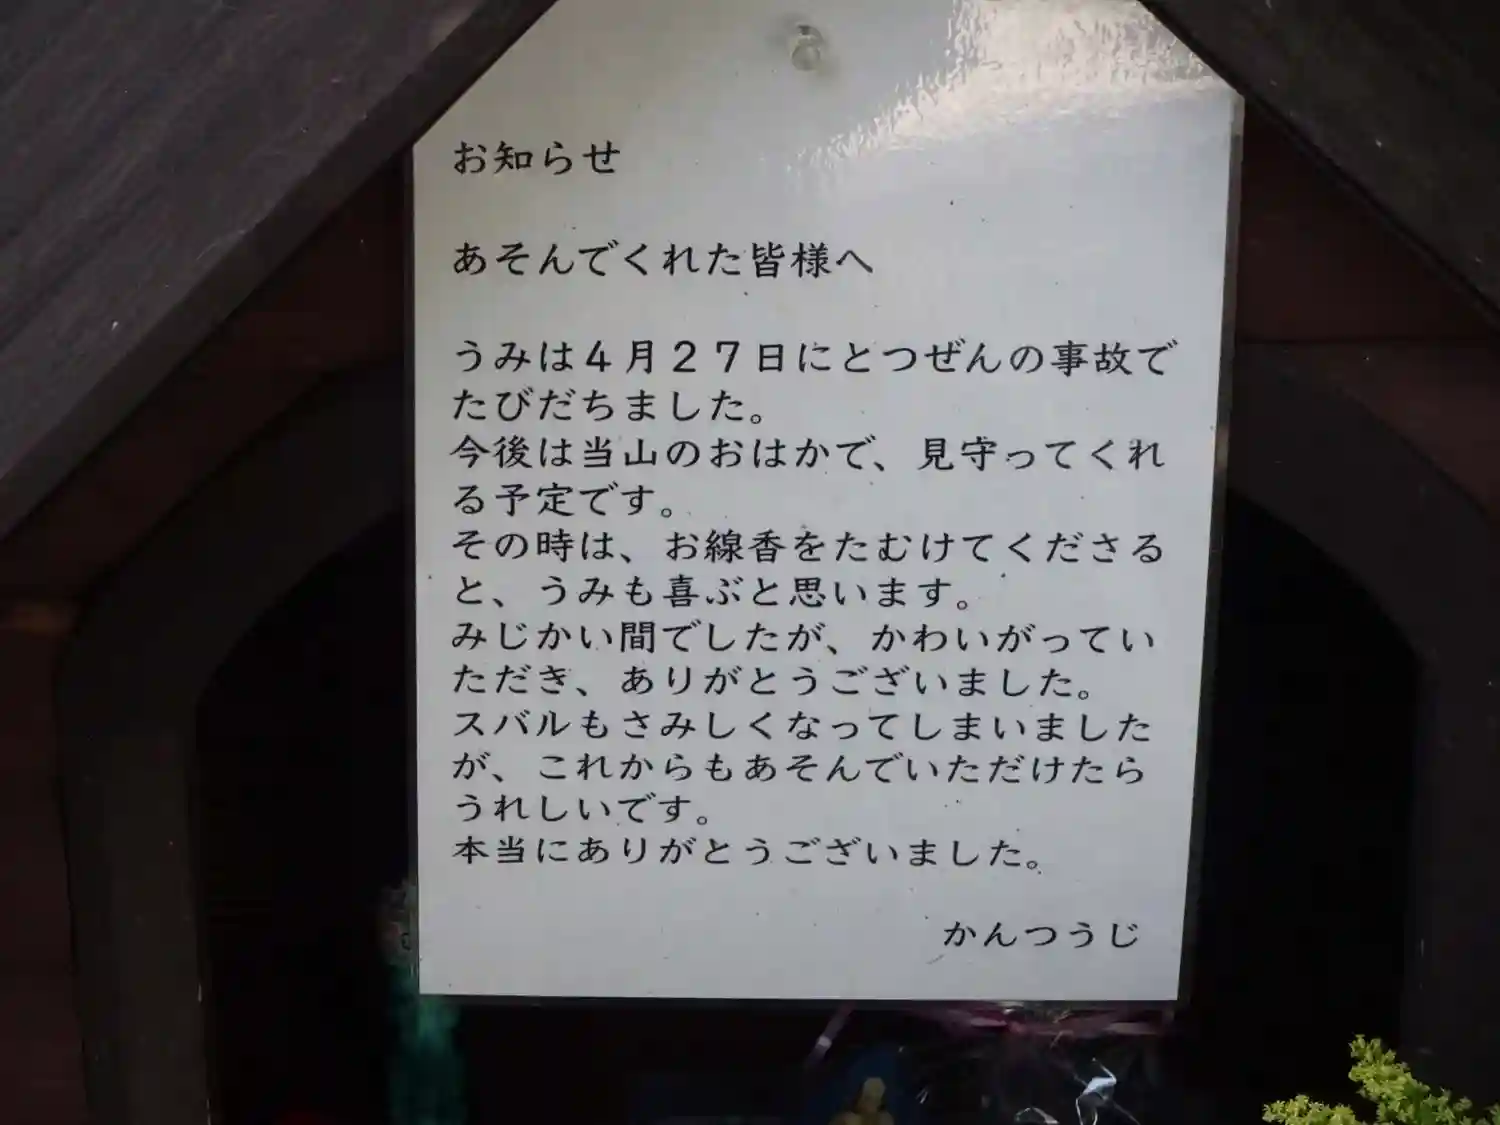 お知らせ
あそんでくれた皆様へ
うみは４月２７日にとつぜんの事故で
たびだちました。
今後は当山のおはかで、見守ってくれ
る予定です。
その時は、お線香をたむけてくださる
と、うみも喜ぶと思います。
みじかい間でしたが、かわいがってい
ただき、ありがとうございました。
スバルもさみしくなってしまいました
が、これからもあそんでいただけたら
うれしいです。
本当にありがとうございました。
かんつうじ